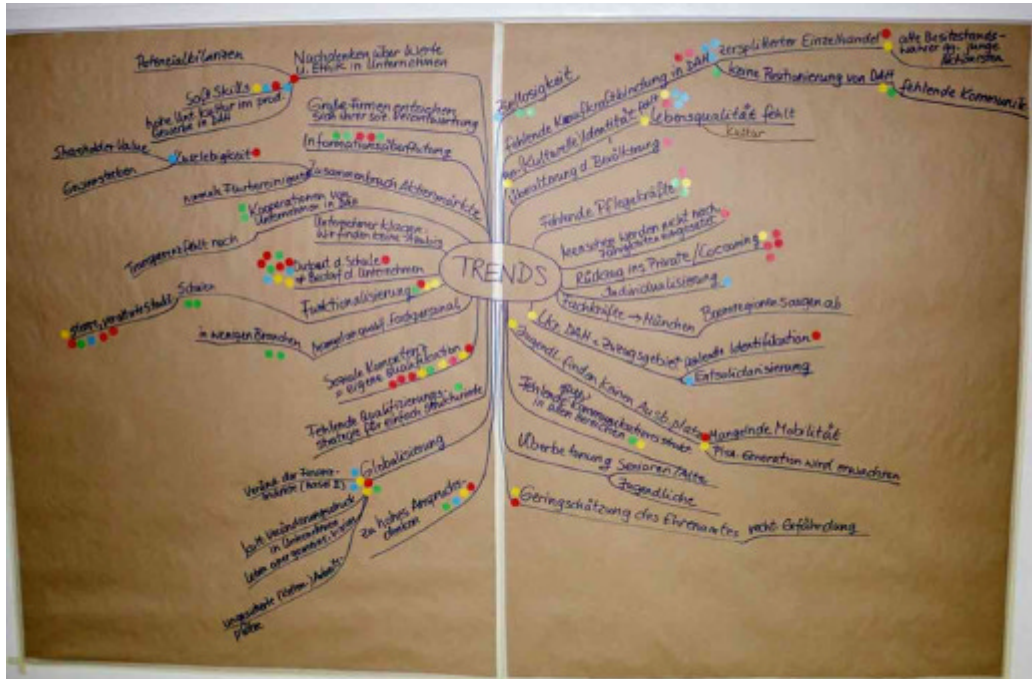 TRENDS
Potenzialbilanzen
Nachdenken über Werte
u. Ethik in Unternehmen
Soft Skills
hohe Unt. Kultur im prod.
Gewerbe in DAH
Große Firmen
sich ihrer soz. Verantwortung
Informationsüberflutung
Shareholder Value
Gewinnstreben
Kurzlebigkeit
Zusammenbruch Aktienmärkte
normale Flurbereinigung
Kooperationen von
Unternehmen in DAH
Transparenz fehlt noch
Unternehmer klagen:
wir finden keine
Output d. Schule
≠ Bedarf d. Unternehmen
Funktionalisierung
Schulen
Mangel an qualif. Fachpersonal
in wenigen Branchen
Soziale Kompetenz
= eigene Qualifikation
Fehlende Qualifizierungs-
strategie für einfach strukturierte
Globalisierung
(Basel II)
in Unternehmen
zu hohes Anspruchs-
denken
Ziellosigkeit
fehlende Kaufkraftbindung in DAH
zersplitterter Einzelhandel
alte Besitzstands-
wahrer gg. junge
keine Positionierung von DAH
fehlende
Kulturelle Identität fehlt
Lebensqualität fehlt
Kultur
Überalterung d. Bevölkerung
Fehlende Pflegekräfte
Menschen werden nicht nach
Fähigkeiten eingesetzt
Rückzug ins Private / Cocooning
Individualisierung
Fachkräfte → München
Boomregionen saugen ab
Lkr. DAH = Zuzugsgebiet
fehlende Identifikation
Entsolidarisierung
Jugendl. finden keinen Ausb.platz
Mangelnde Mobilität
Pisa-Generation wird erwachsen
Fehlende
in allen Bereichen
Überbetonung Senioren / Alte
Jugendliche
Geringschätzung des Ehrenamtes
Gefährdung